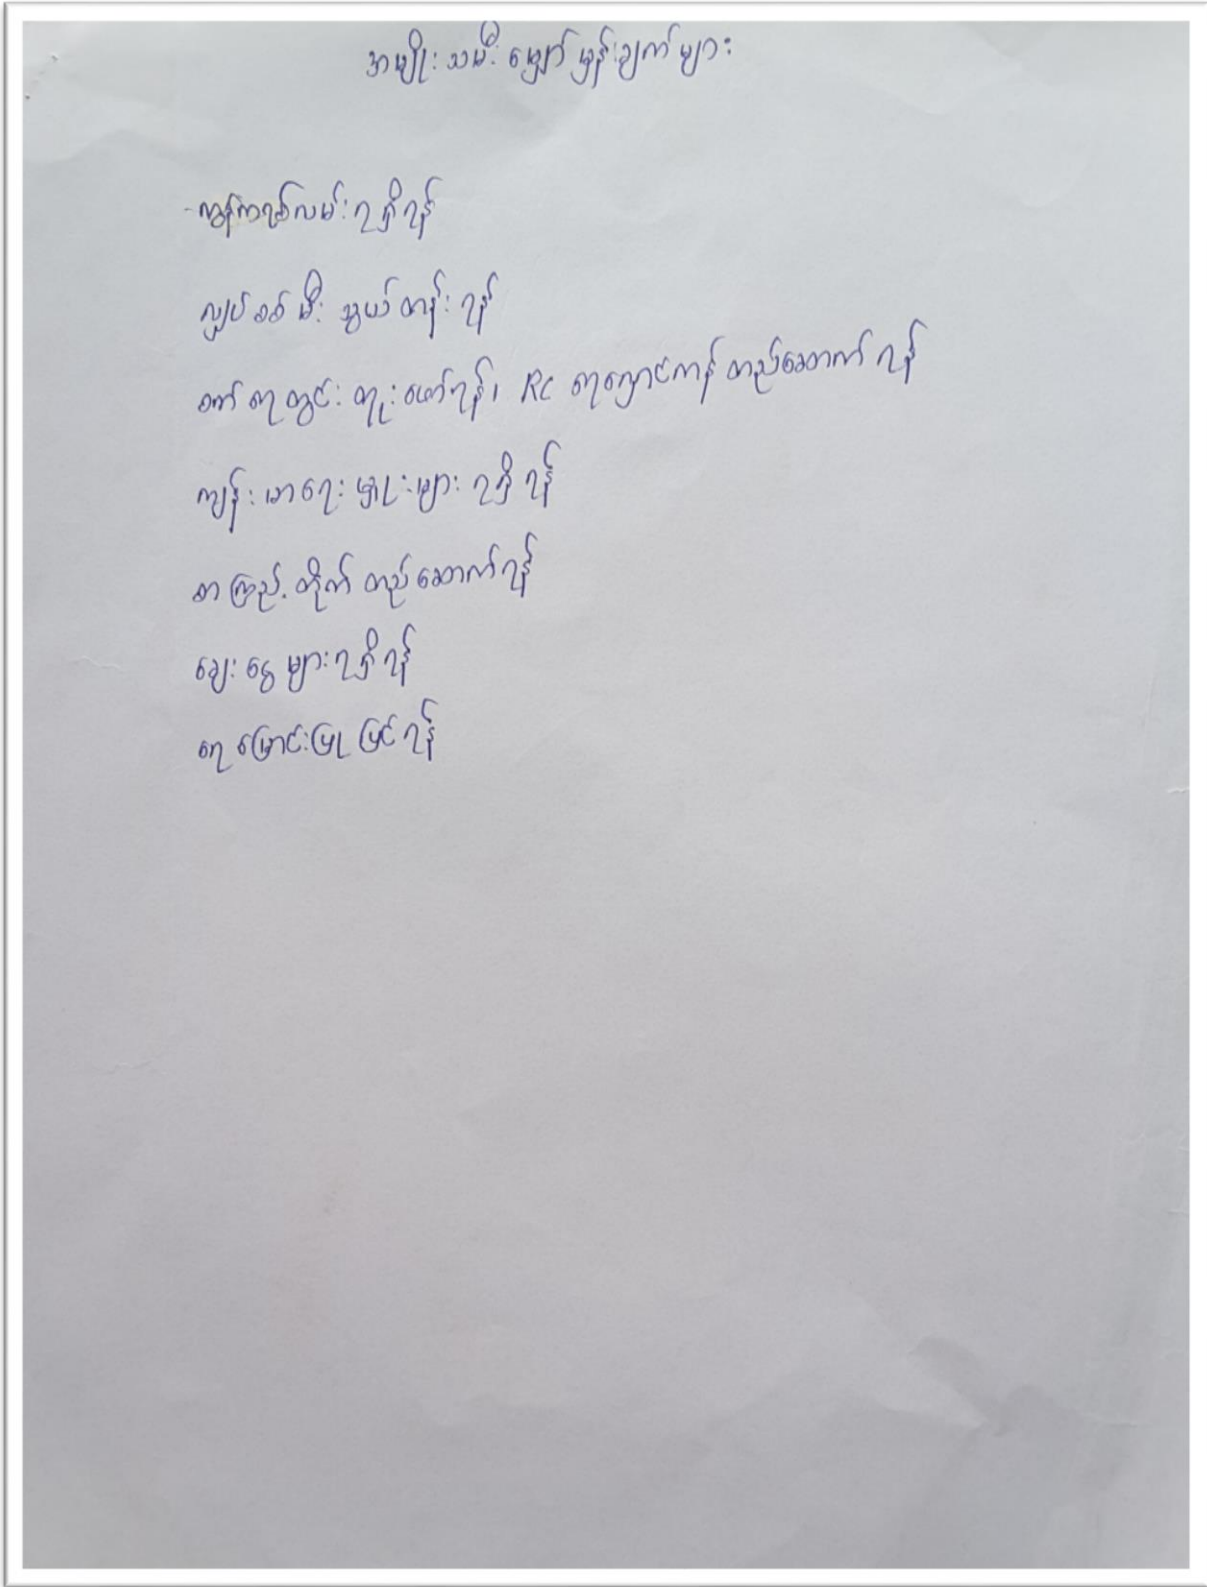 အမျိုးသမီး မျှော်မှန်းချက်များ
- ကွန်ကရစ်လမ်း ရရှိရန်
လျှပ်စစ်မီး သွယ်တန်းရန်
စက်ရေတွင်း တူးဖော်ရန်၊ RC ရေလှောင်ကန် တည်ဆောက်ရန်
ကျန်းမာရေးမှူးများ ရရှိရန်
စာကြည့်တိုက် တည်ဆောက်ရန်
ချေးငွေများ ရရှိရန်
ရေမြောင်းပြုပြင်ရန်